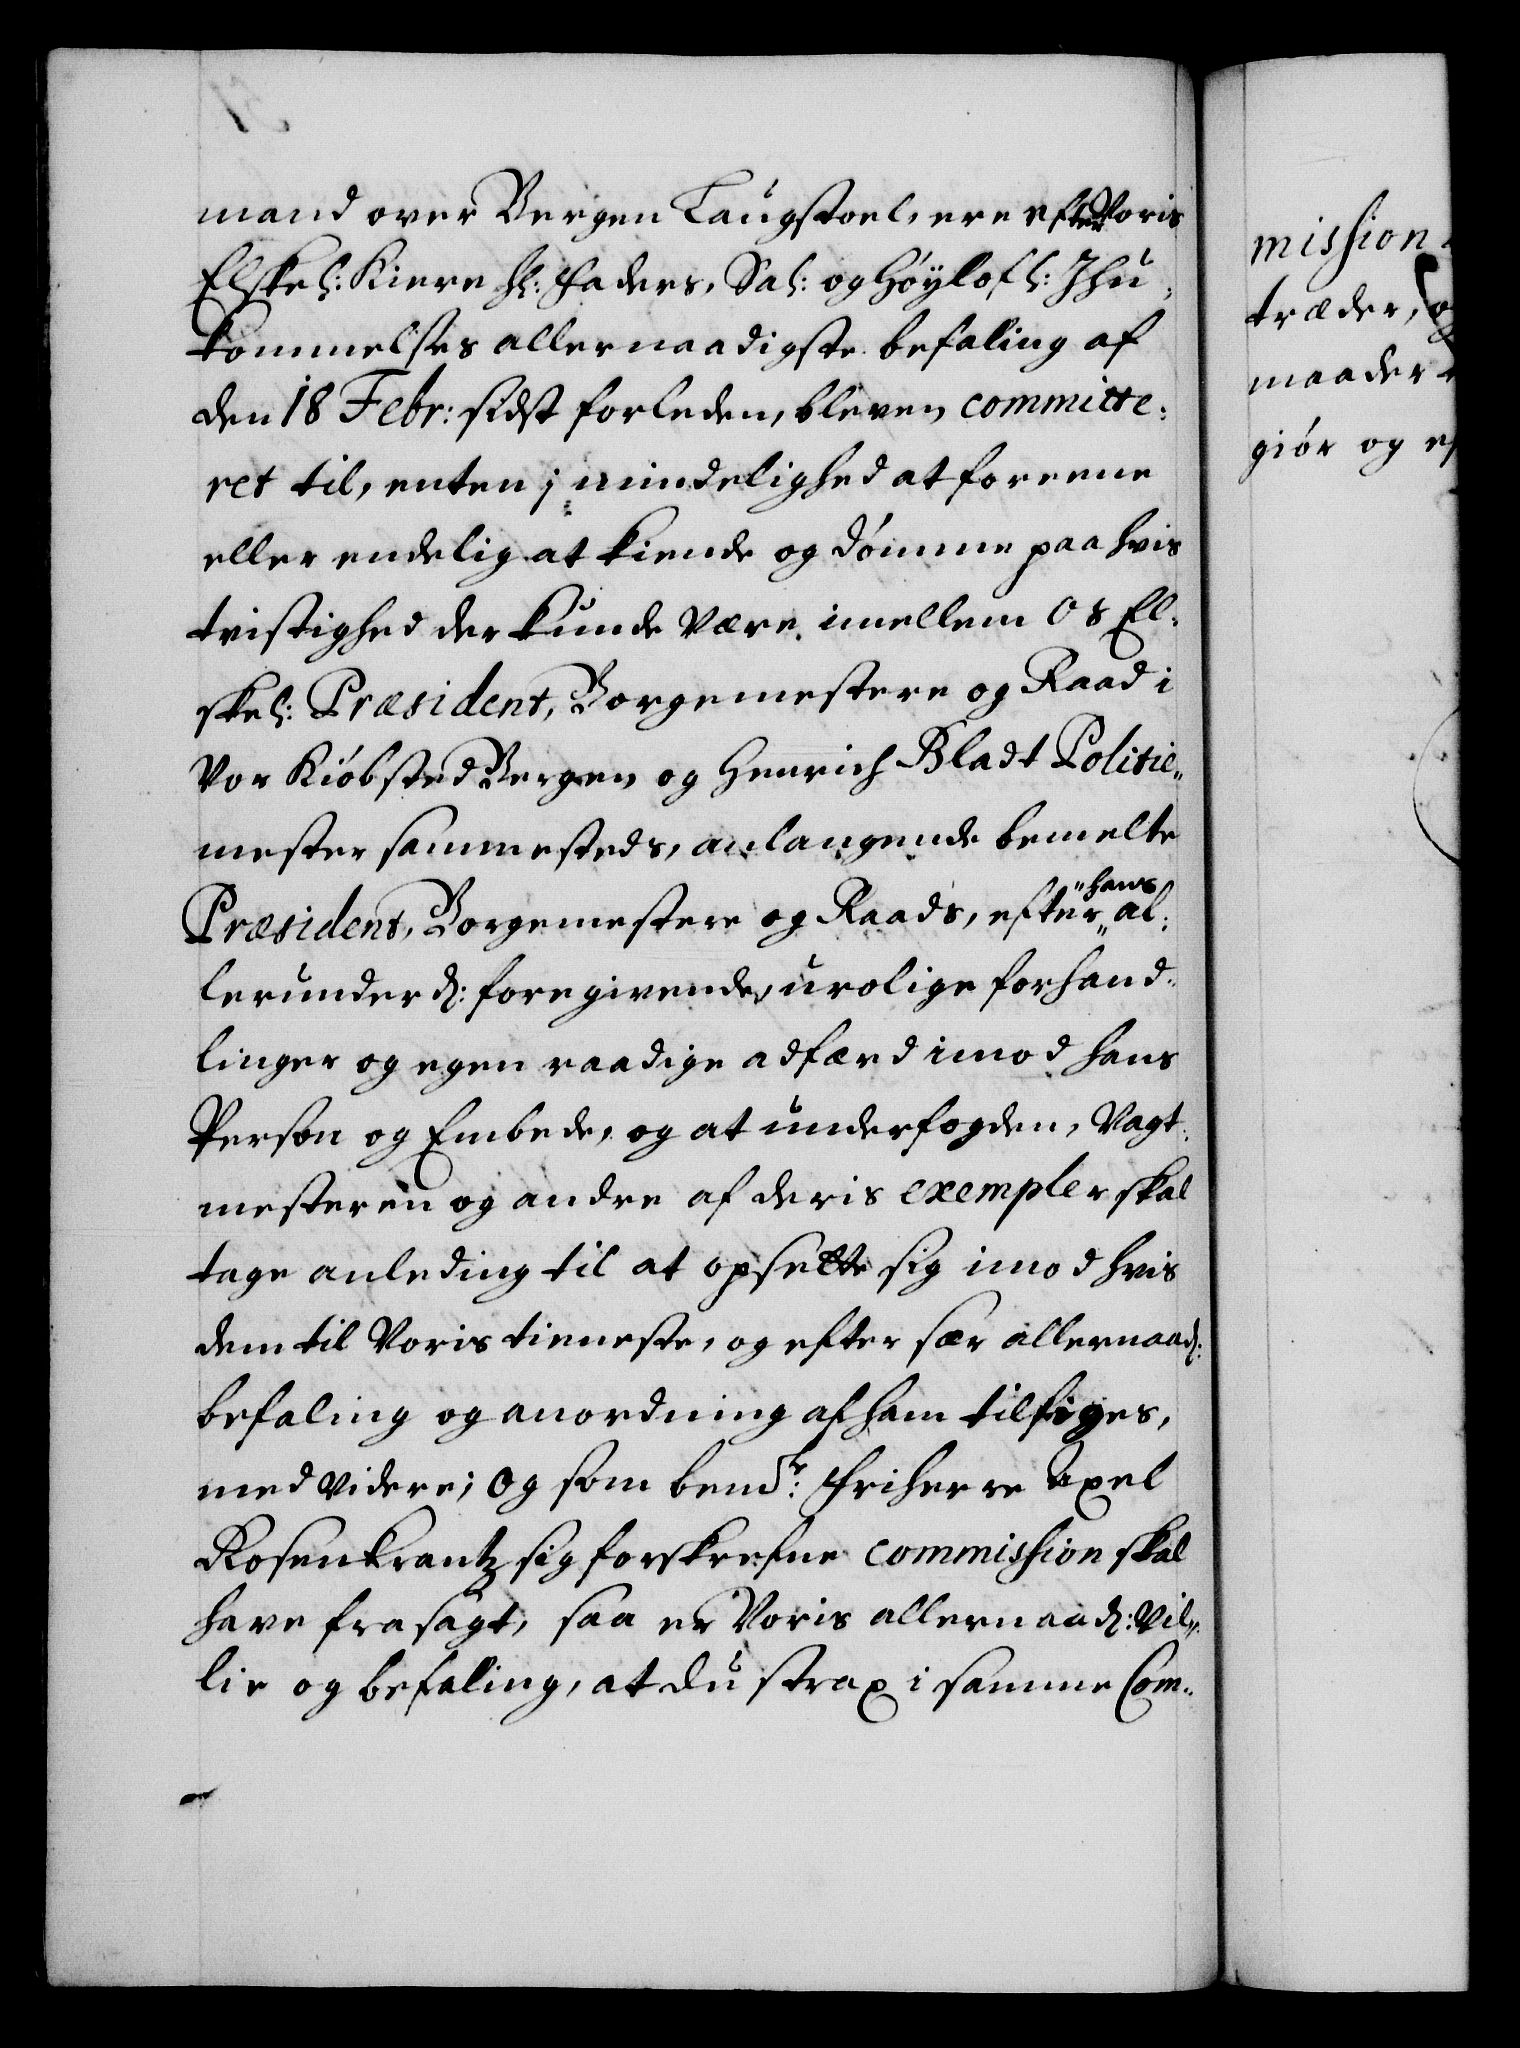 mand over Bergen Laugstoel, ere efter Voris
Elskel: Kiere Hr: Faders, Sal: og Høylofl: Ihu,
kommelses allernaadigste befaling af
den 18 Febr: sidst forleden, bleven committe:
ret til, enten i mindelighed at foreene
eller endelig at kiende og dømme paa hvis
tvistighed der kunde være imellem os El:
skel: Præsident, Borgemestere og Raad i
Vor Kiøbsted Bergen og Henrich Bladt Politie„
mester sammesteds, anlangende bemelte
Præsident, Borgemestere og Raads, efter „hans„ al:
lerunderd: foregivende, urolige forhand:
linger og egen raadige adfærd imod hans
Person og Embede, og at underfogden, Vagt:
mesteren og andre af deris exempler skal
tage anleding til at opsette sig imod hvis
dem til Voris tieneste, og efter sær allernaad:
befaling og anordning af ham tilsiges,
med videre; og som bemte: Friherre Axel
Rosenkrantz sig forskrefne commission skal
have frasagt, saa er Voris allernaad: Vil„
lie og befaling, at du strax i samme Com„
mission
træder, og
maader
giør og ef